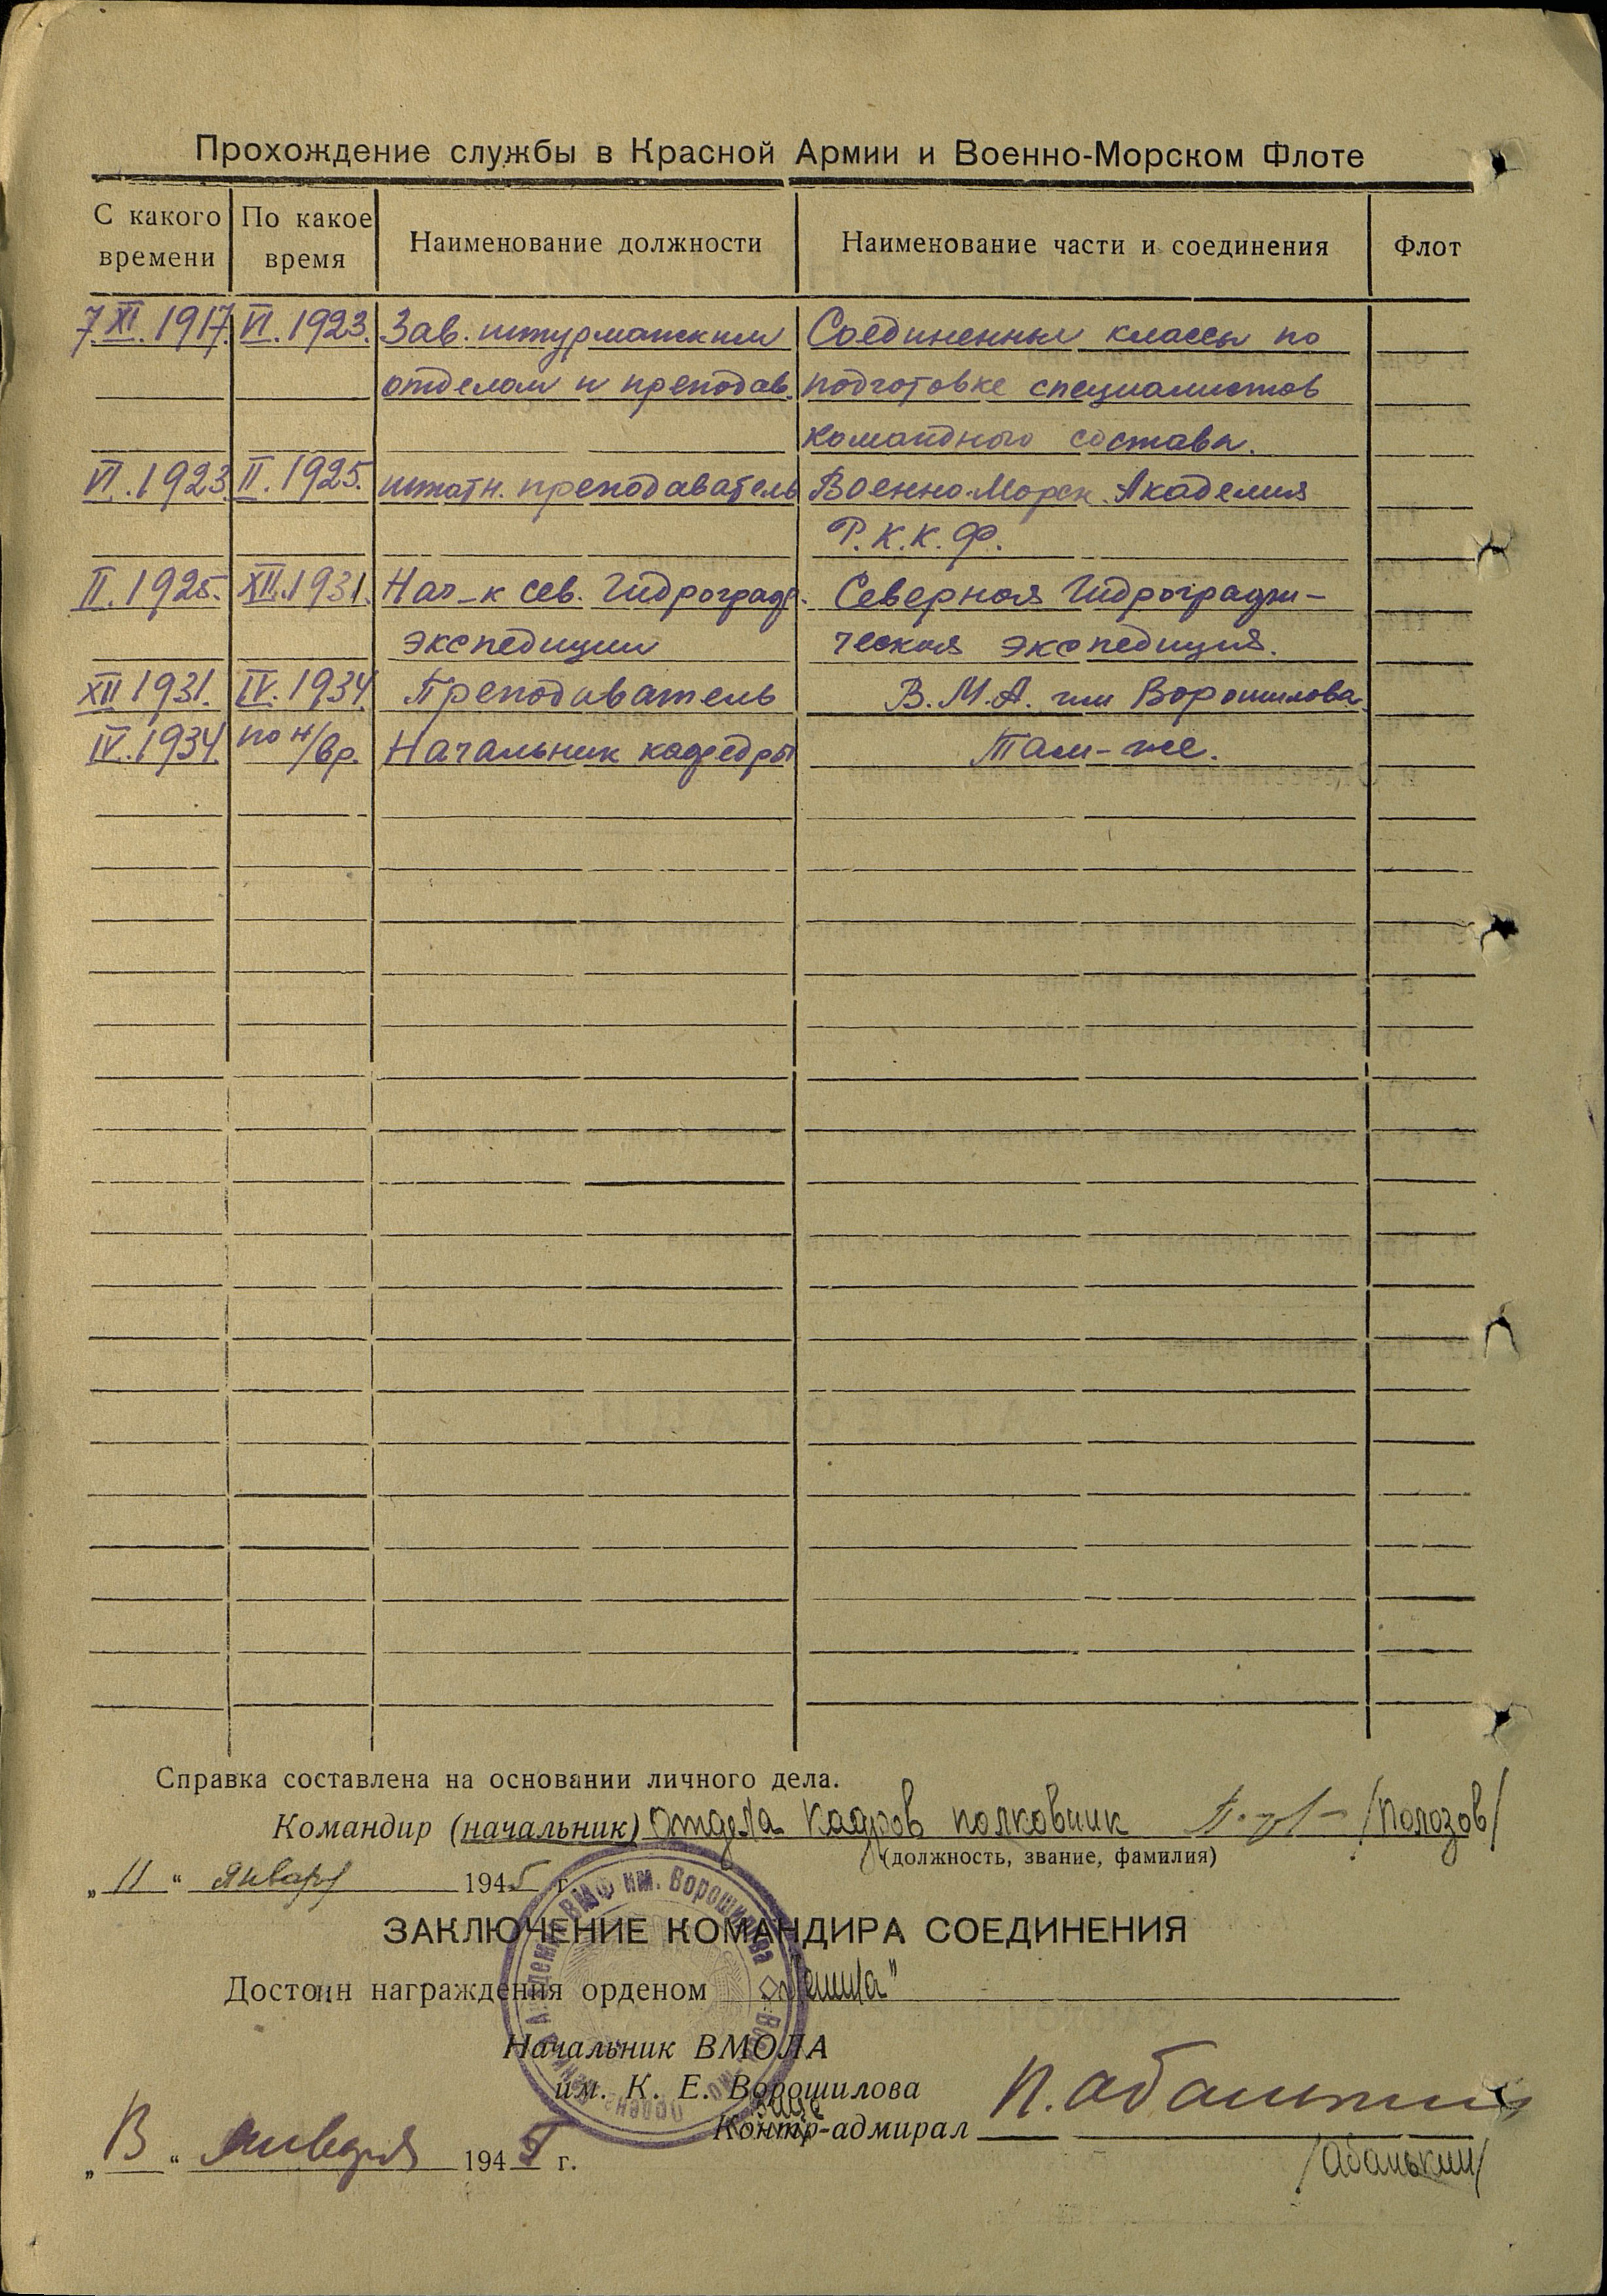 Прохождение службы в Красной Армии и Военно-Морском Флоте
С какого времени По какое время Наименование должности Наименование части и соединения Флот
7.XI.1917. VI.1923. Зав. штурманским Соединенные классы по
отделом и преподав. подготовке специалистов
командного состава.
VI.1923. II.1925. штатн. преподаватель Военно-Морск. Академия
Р.К.К.Ф.
II.1925. XII.1931. Нач-к сев. Гидрограф. Северная Гидрографи-
экспедиции ческая экспедиция.
XII 1931. IV.1934. Преподаватель В.М.А. им Ворошилова.
IV.1934. по н/вр. Начальник кафедры Там-же.
Справка составлена на основании личного дела.
Командир (начальник) отдела кадров полковник /Полозов/
(должность, звание, фамилия)
„11“ января 1945 г.
ЗАКЛЮЧЕНИЕ КОМАНДИРА СОЕДИНЕНИЯ
Достоин награждения орденом „Ленина"
Начальник ВМОЛА
им. К. Е. Ворошилова
вице
Контр-адмирал П. Абанькин
„13“ января 1945 г.
/Абанькин/
Академия ВМФ им. Ворошилова